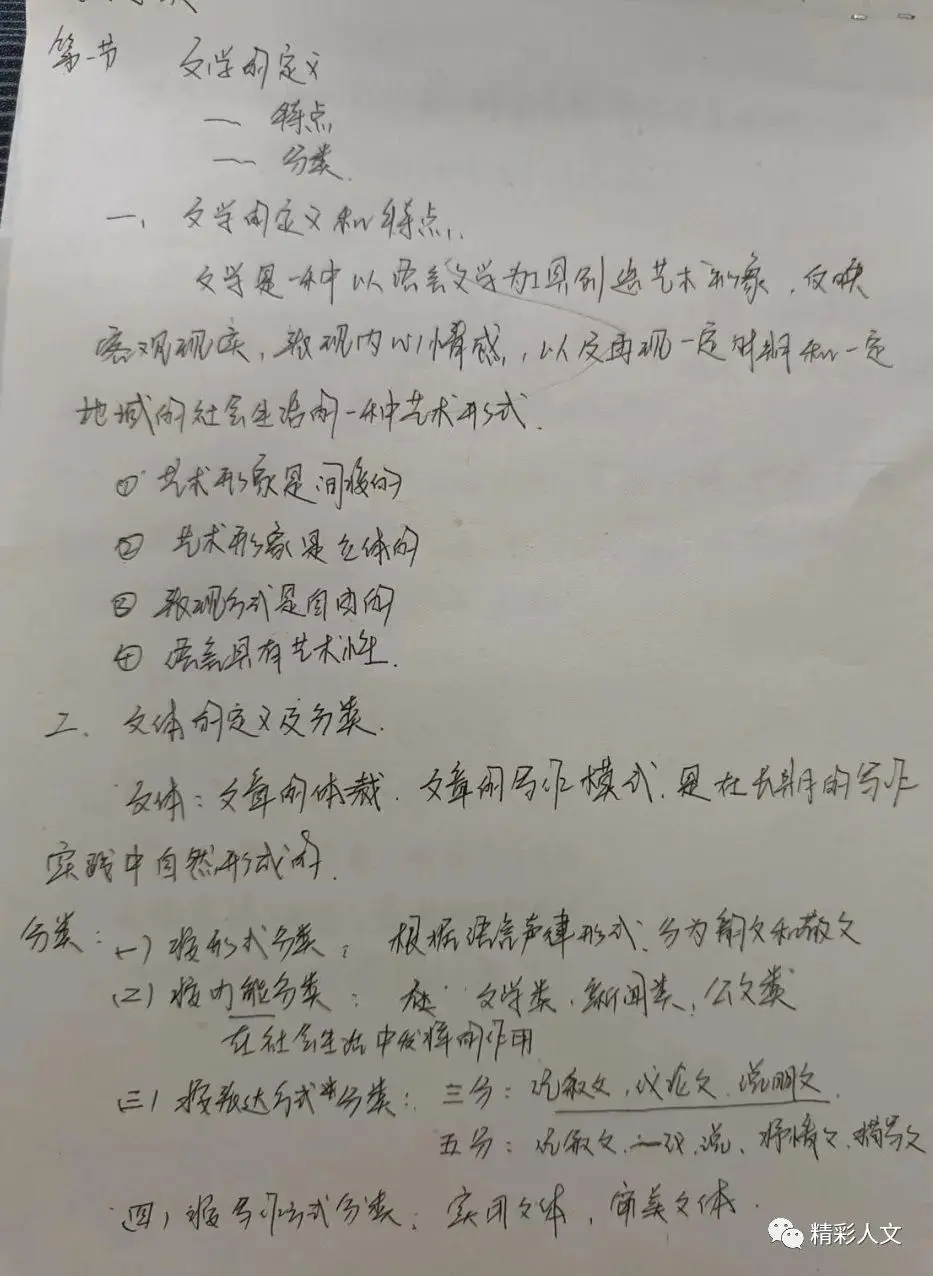 第一节 文学的定义
— 特点
— 分类.
一、文学的定义和特点.
文学是一种以语言文学为工具创造艺术形象、反映
客观现实、表现内心情感,以及再现一定时期和一定
地域的社会生活的一种艺术形式.
① 艺术形象是间接的
② 艺术形象是立体的
③ 表现方式是自由的
④ 语言具有艺术性.
二、文体的定义及分类.
文体:文章的体裁、文章的写作模式、是在长期的写作
实践中自然形成的.
分类:(一)按形式分类:根据语言声律形式、分为韵文和散文
(二)按功能分类: 文学类、新闻类、公文类
在社会生活中发挥的作用
(三)按表达方式分类:三分:记叙文、议论文、说明文
五分:记叙文、一议、说、抒情文、描写文
(四)按写作方式分类:实用文体、审美文体.
精彩人文